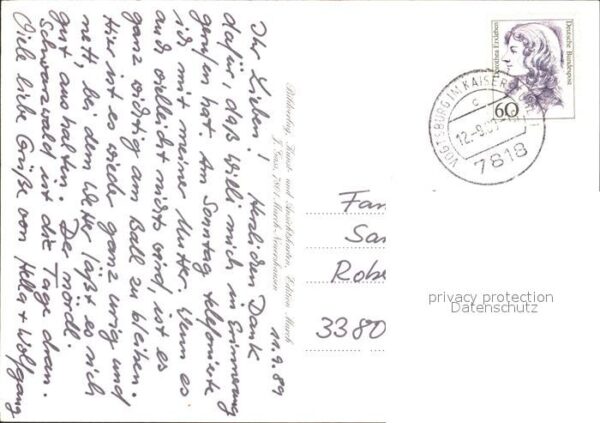 11.9.89
Ihr Lieben! Herzlichen Dank
dafür, daß Willi mich in Erinnerung
gerufen hat. Am Sonntag telefonierte
ich mit meiner Mutter. Wenn es
auch vielleicht nichts wird, ist es
ganz wichtig am Ball zu bleiben.
Hier ist es wieder ganz urig und
nett, bei dem Wetter läßt es sich
gut aushalten. Der nördl.
Schwarzwald ist die Tage dran.
Viele liebe Grüße von Hella + Wolfgang
Bildverlag, Kunst- und Ansichtskarten, Edition March
7801 March-Neuershausen
Deutsche Bundespost
60
VOGTSBURG IM KAISERSTUHL
c
12.-9.89
7818
Fam
Sa
Robe
3380
privacy protection
Datenschutz